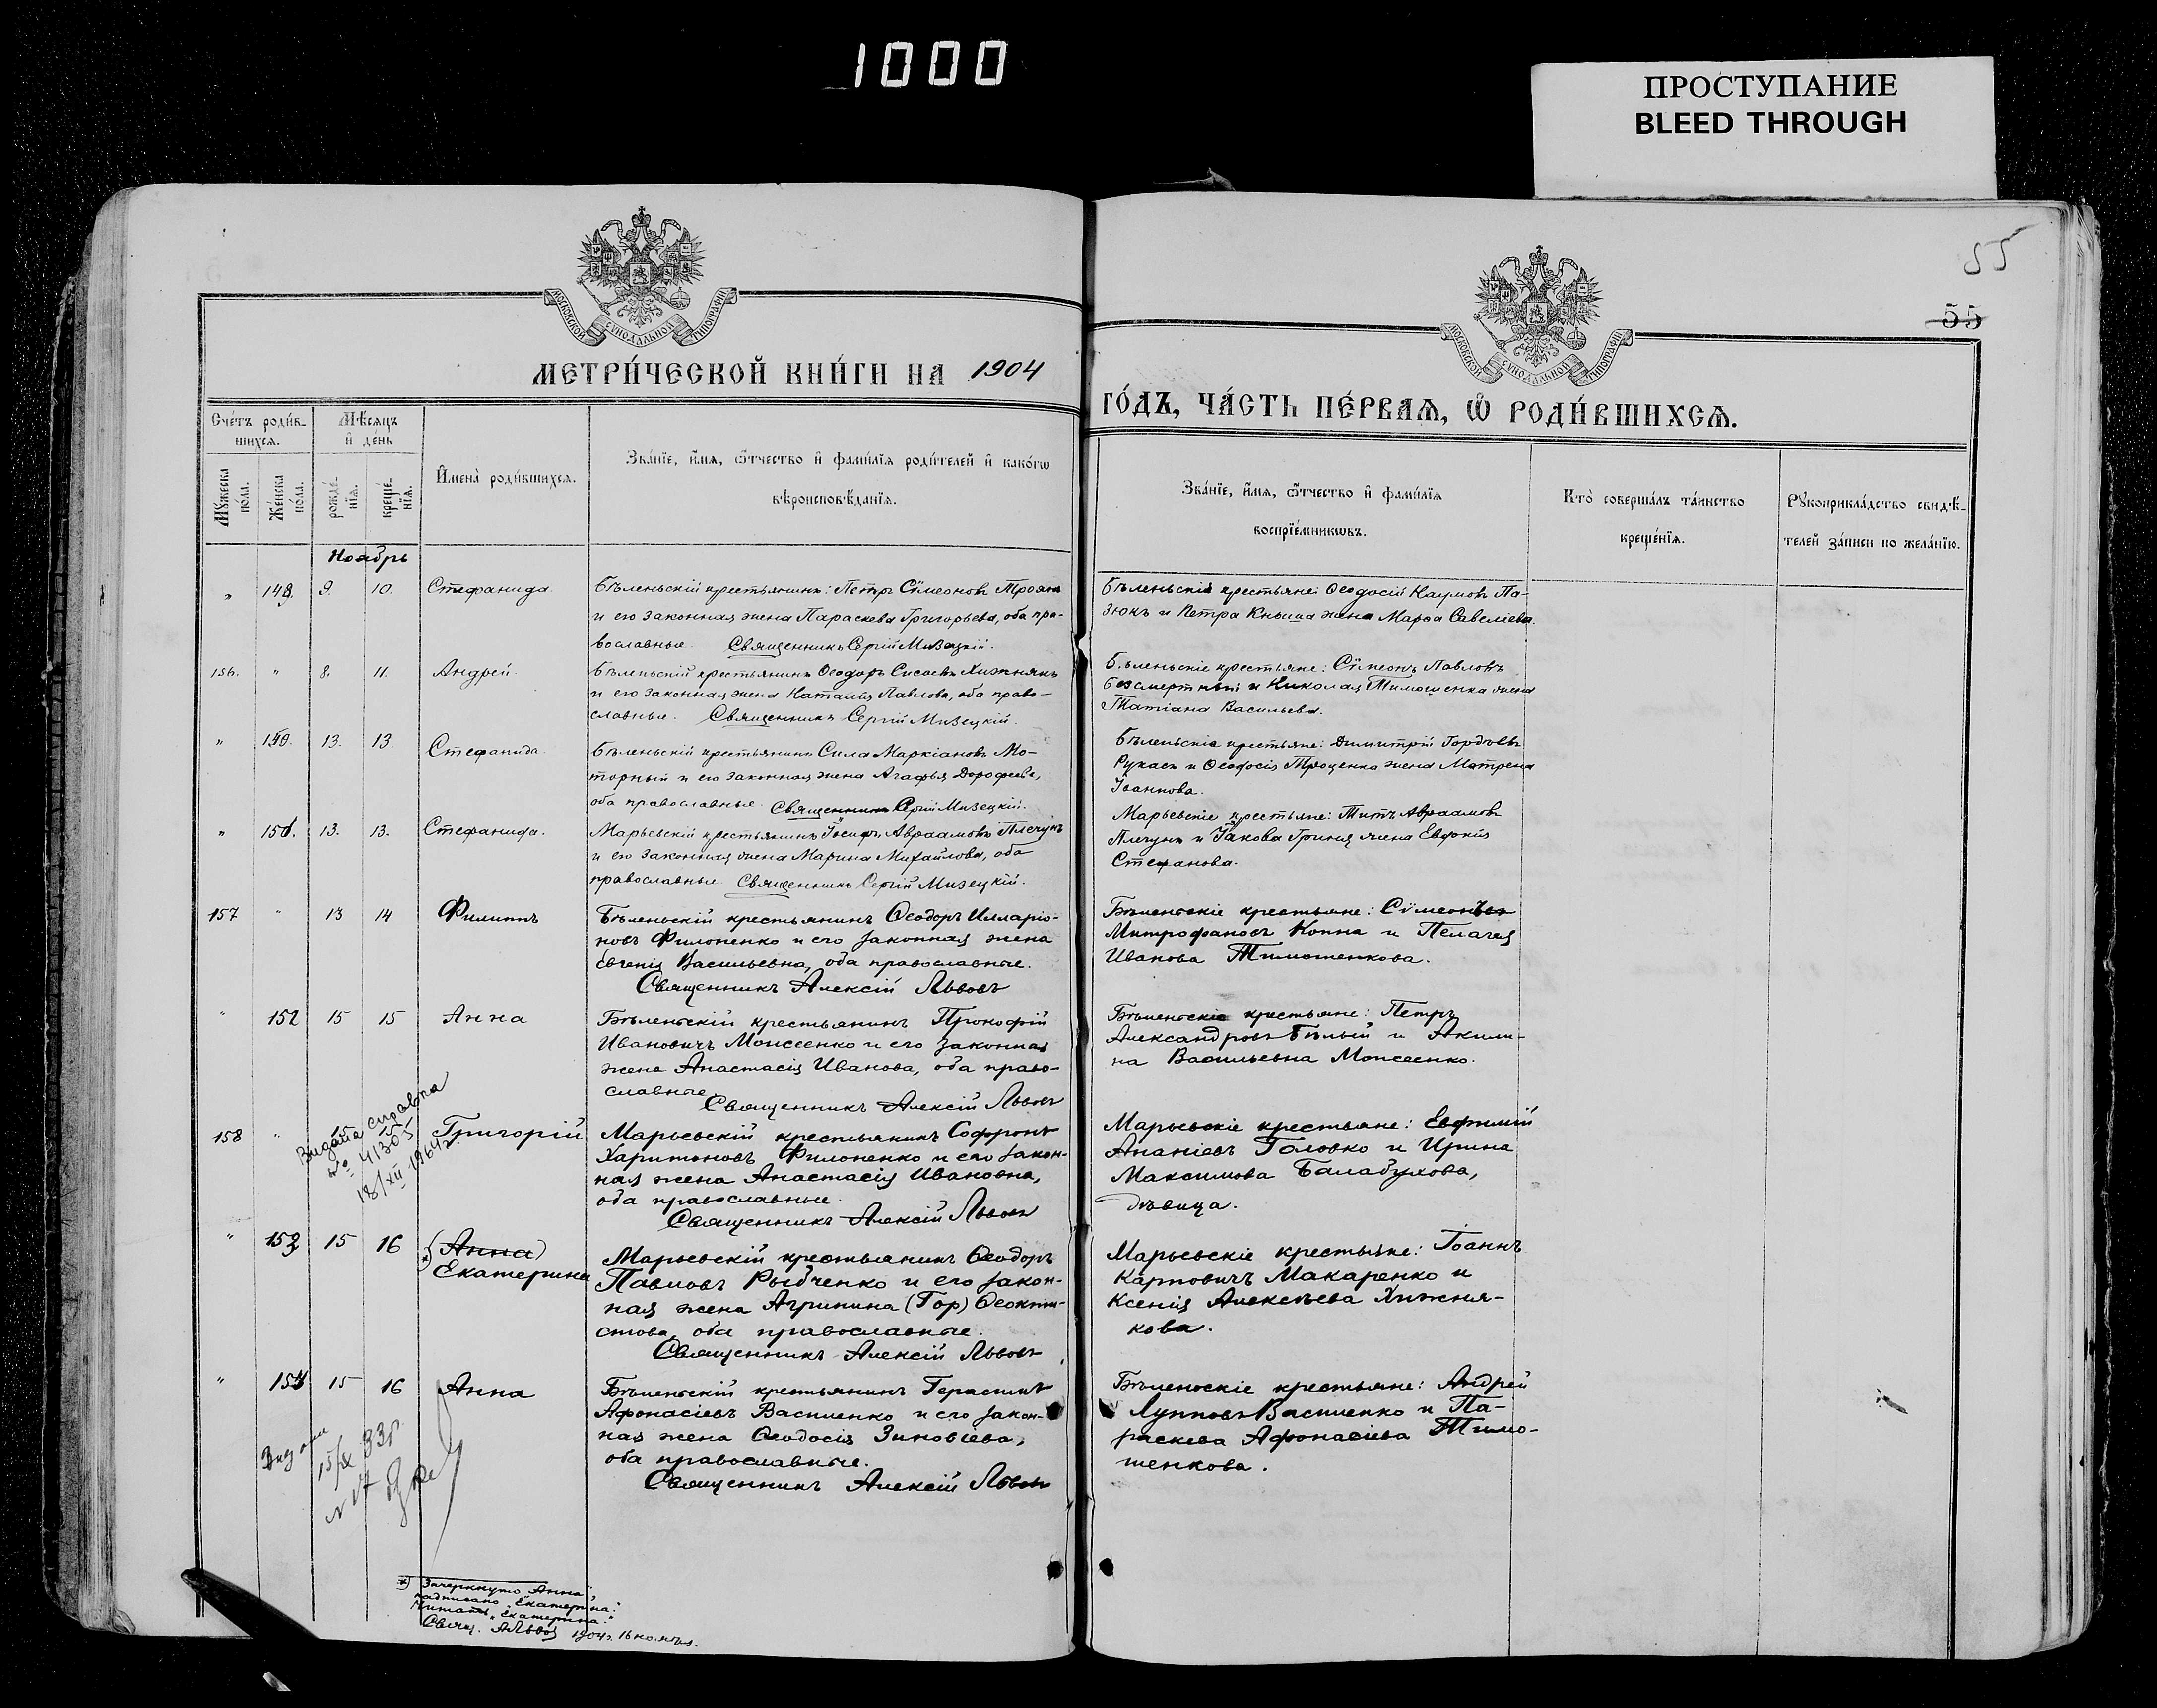 1000
ПРОСТУПАНИЕ
BLEED THROUGH
55
55
МОСКОВСКОЙ СѴНОДАЛЬНОЙ ТИПОГРАФІИ
МОСКОВСКОЙ СѴНОДАЛЬНОЙ ТИПОГРАФІИ
МЕТРИ́ЧЕСКОЙ КНИ́ГИ НА 1904
ГО́ДЪ, ЧА́СТЬ ПЕ́РВАѦ, Ѽ РОДИ́ВШИХСѦ.
Сче́тъ роди́в-
шихсѧ.
Мѣ́сѧцъ
и҆ де́нь
Мꙋ́жеска
по́ла.
Же́нска
по́ла.
рожде́-
нїѧ.
креще́-
нїѧ.
И҆мена̀ роди́вшихсѧ.
Зва́нїе, и҆́мѧ, ѿтчество и҆ фами́лїѧ роди́телей и҆ како́гѡ
вѣроисповѣ́данїѧ.
Зва́нїе, и҆́мѧ, ѿтчество и҆ фами́лїѧ
воспрїе́мникѡвъ.
Кто̀ соверша́лъ та́инство
креще́нїѧ.
Рꙋкоприкла́дство свидѣ́-
телей за́писи по жела́нїю.
Ноябрь
" 149. 9. 10. Стефанида.
Бѣленьскій крестьянинъ: Петръ Сѵмеоновъ Троянъ
и его законная жена Параскева Григорьева, оба пра-
вославные. Священникъ Сергій Мизецкій.
Бѣленьскіе крестьяне: Ѳеодосій Наумовъ Па-
зюкъ и Петра Кныша жена Марѳа Савеліева.
156. " 8. 11. Андрей.
Бѣленьскій крестьянинъ Ѳеодоръ Сисоевъ Хижнякъ
и его законная жена Наталія Павлова, оба право-
славные. Священникъ Сергій Мизецкій.
Бѣленьскіе крестьяне: Сѵмеонъ Павловъ
Безсмертный и Николая Тимошенка жена
Татіана Васильева.
" 150. 13. 13. Стефанида.
Бѣленьскій крестьянинъ Сила Маркіановъ Мо-
торный и его законная жена Агафья Дорофеева,
оба православные. Священникъ Сергій Мизецкій.
Бѣленьскіе крестьяне: Димитрій Гордѣевъ
Рукасъ и Ѳеодосія Троценка жена Матрена
Іоаннова.
" 151. 13. 13. Стефанида.
Марьевскій крестьянинъ Іосифъ Авраамовъ Плечунъ
и его законная жена Марина Михайлова, оба
православные. Священникъ Сергій Мизецкій.
Марьевскіе крестьяне: Титъ Авраамовъ
Плечунъ и Іакова Гриня жена Евдокія
Стефанова.
157 " 13 14 Филиппъ
Бѣленьскій крестьянинъ Ѳеодоръ Илларіо-
новъ Филоненко и его законная жена
Евгенія Васильевна, оба православные.
Священникъ Алексій Львовъ
Бѣленьскіе крестьяне: Сѵмеонъ
Митрофановъ Копна и Пелагея
Иванова Тимошенкова.
" 152 15 15 Анна
Бѣленьскій крестьянинъ Прокофій
Ивановичъ Моисеенко и его законная
жена Анастасія Иванова, оба право-
славные.
Священникъ Алексій Львовъ
Бѣленьскіе крестьяне: Петръ
Александровъ Бѣлый и Акили-
на Васильевна Моисеенко.
Видата справка
№ 41305
18/XII 1964г.
158 " 15 15 Григорій
Марьевскій крестьянинъ Софронъ
Харитоновъ Филоненко и его закон-
ная жена Анастасія Ивановна,
оба православные.
Священникъ Алексій Львовъ
Марьевскіе крестьяне: Евфимій
Ананіевъ Головко и Ирина
Максимова Балабухова,
дѣвица.
" 153 15 16 *) (Анна)
Екатерина
Марьевскій крестьянинъ Ѳеодоръ
Павловъ Рыбченко и его закон-
ная жена Агрипина (Гор) Ѳеокти-
стова, оба православные.
Священникъ Алексій Львовъ
Марьевскіе крестьяне: Іоаннъ
Карповичъ Макаренко и
Ксенія Алексѣева Хижня-
кова.
" 154 15 16 Анна
Бѣленьскій крестьянинъ Герасимъ
Афонасіевъ Василенко и его закон-
ная жена Ѳеодосія Зиновіева,
оба православные.
Священникъ Алексій Львовъ
Бѣленьскіе крестьяне: Андрей
Лупповъ Василенко и Па-
раскева Афонасіева Тимо-
шенкова.
*) Зачеркнуто "Анна"
надписано "Екатерина."
Читать "Екатерина."
Свящ. АЛьвовъ 1904г. 16 ноября.